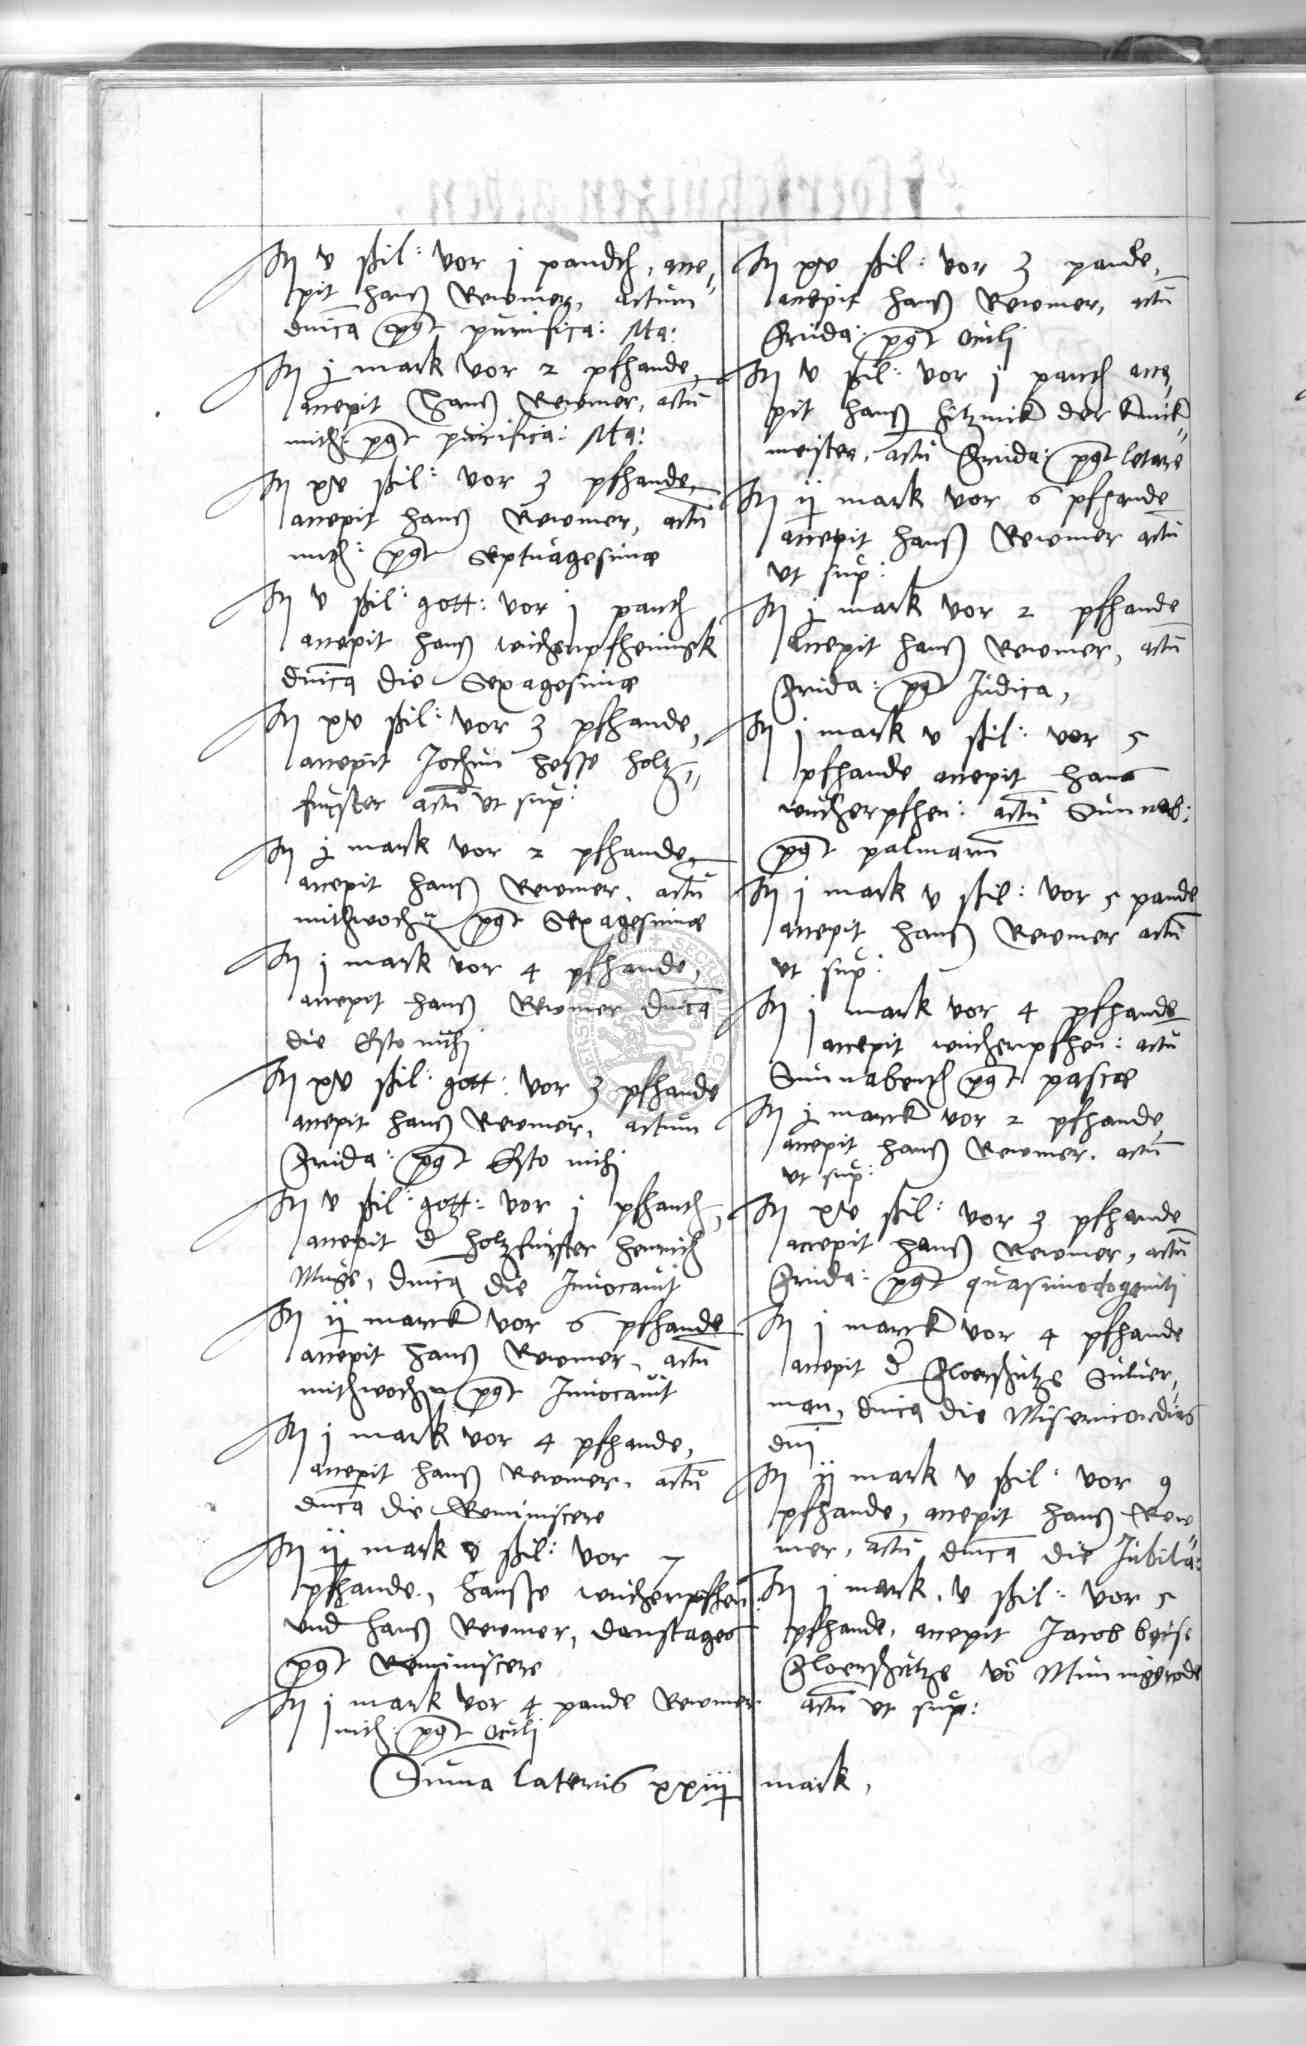 It v ßil: vor j pandth, acce¸
pit Hanß Rewmer, actum
dnica post purifica: Ma:
It j mark vor 2 pfhande,
accepit Hanß Rewmer, actu
mith: post purifica: Ma:
It xv ßil: vor 3 pfhande,
accepit Hanß Rewmer, actu
mith: post Septuagesimae
It v ßil: gott: vor j panth
accepit Hanß wucherpfhenningk
dnica die Sexagesimae
It xv ßil: vor 3 pfhande,
accepit Jochim Hesse Holtz
furster actu ut sup:
It j mark vor 2 pfhande,
accepit Hanß Rewmer, actu
mithwochen post Sexagesimae
It j mark vor 4 pfhande,
accepit Hanß Rewmer dnica
die Esto mihi
It xv ßil: gott: vor 3 pfhande
accepit Hanß Rewmer, actum
Frida: post Esto mihi
It v ßil: gott: vor j pfhanth,
accepit d Holtzfurster Henrich
dnica die Invocavit
It ij marck vor 6 pfhande
accepit Hanß Rewmer, actu
mithwochen post Invocavit
It j mark vor 4 pfhande,
accepit Hanß Rewmer, actu
dnica die Reminiscere
It ij mark v ßil: vor 7
pfhande, Hansse wucherpfhen:
und Hanß Rewmer, donstages
post Reminiscere
It j mark vor 4 pande Rewmer
mith: post Oculi
It xv ßil: vor 3 pande,
accepit Hanß Rewmer, actu
Frida: post Oculi
It v ßil: vor j panth acce
pit Hanß der
meister, actu Frida: post letare
It ij mark vor 6 pfhande
accepit Hanß Rewmer actu
ut sup:
It j mark vor 2 pfhande
accepit Hanß Rewmer, actu
Frida: post Judica,
It j mark v ßil: vor 5
pfhande accepit Hans
wucherpfhen: actu Sunnab:
post palmarum
It j mark v ßil: vor 5 pande
accepit Hanß Rewmer actu
ut sup:
It j mark vor 4 pfhande
accepit wucherpfhen: actu
Sunnabenth post pascae
It j marck vor 2 pfhande
accepit Hanß Rewmer, actu
ut sup:
It xv ßil: vor 3 pfhande
accepit Hanß Rewmer, actu
Frida: post quasimodogeniti
It j marck vor 4 pfhande
accepit d Floerschutze Sulver¸
man, dnica die Misericordias
dni
It ij mark v ßil: vor 9
pfhande, accepit Hanß Rew
mer, actu dnica die Jubila:
It j mark, v ßil: vor 5
pfhande, accepit Jacob
Floerschutze vo Minnigerode
actu ut sup:
Suma lateris xxiij mark,